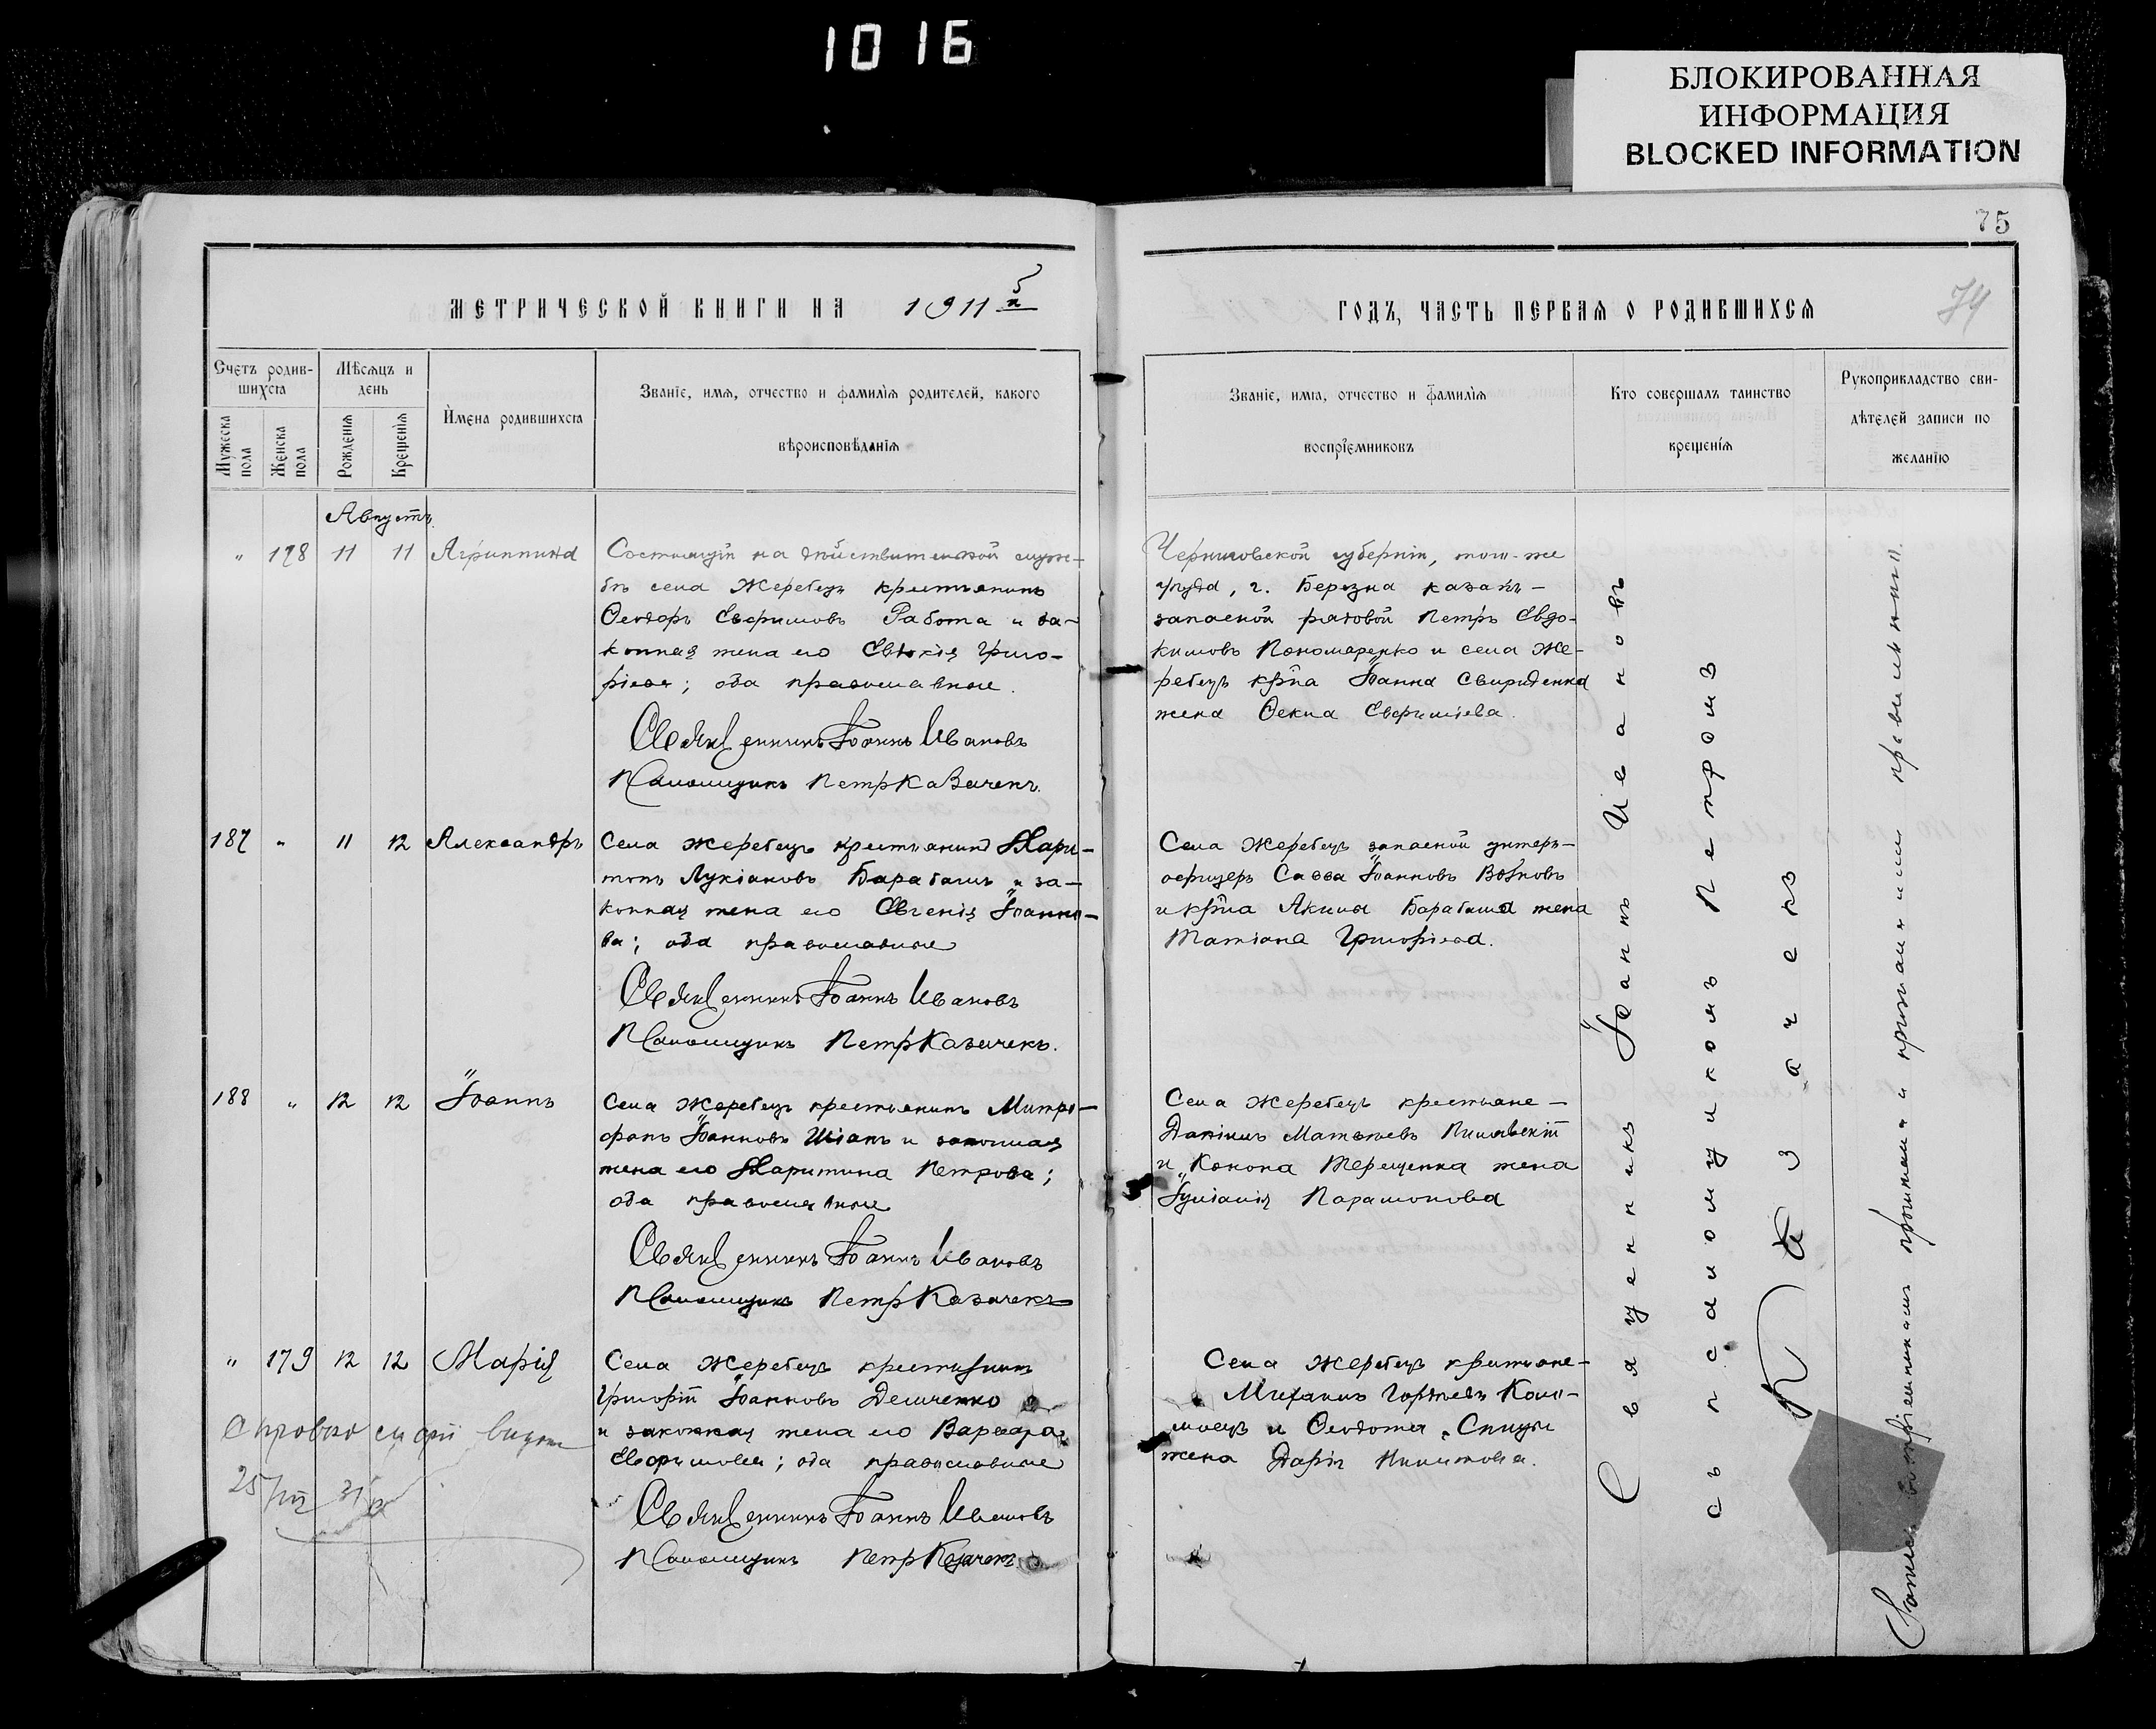 1016
БЛОКИРОВАННАЯ
ИНФОРМАЦИЯ
BLOCKED INFORMATION
75
74
МЕТРИЧЕСКОЙ КНИГИ НА 1911
ГОДЪ, ЧАСТЬ ПЕРВАЯ О РОДИВШИХСЯ
Счетъ родив-
шихся
Мужеска пола
Женска пола
Мѣсяцъ и
день
Рожденія
Крещенія
Имена родившихся
Званіе, имя, отчество и фамилія родителей, какого
вѣроисповѣданія
Званіе, имя, отчество и фамилія
воспріемниковъ
Кто совершалъ таинство
крещенія
Рукоприкладство сви-
дѣтелей записи по
желанію
Августъ
" 178 11 11 Агриппина
Состоящій на дѣйствительной служ-
бѣ села Жеребецъ крестьянинъ
Ѳеодоръ Евфимовъ Работа и за-
конная жена его Евдокія Григо-
ріева; оба православные.
Священникъ Іоаннъ Ивановъ
Псаломщикъ Петръ Казачекъ.
Черниговской губерніи, того-же
уѣзда, г. Березна казакъ-
запасной рядовой Петръ Евдо-
кимовъ Пономаренко и села Же-
ребецъ кр-на Іоанна Свириденка
жена Ѳекла Евфиміева.
187 " 11 12 Александръ
Села Жеребецъ крестьянинъ Хари-
тонъ Лукіановъ Барабашъ и за-
конная жена его Евгенія Іоанно-
ва; оба православные
Священникъ Іоаннъ Ивановъ
Псаломщикъ Петръ Казачекъ.
Села Жеребецъ запасной унтеръ-
офицеръ Савва Іоанновъ Волковъ
и кр-на Акилы Барабаша жена
Татіана Григоріева.
188 " 12 12 Іоаннъ
Села Жеребецъ крестьянинъ Митро-
фанъ Іоанновъ Шіанъ и законная
жена его Харитина Петрова;
оба православные
Священникъ Іоаннъ Ивановъ
Псаломщикъ Петръ Казачекъ
Села Жеребецъ крестьяне-
Даніилъ Матѳеевъ
и Конона Терещенка жена
Іуліанія Парамонова
" 179 12 12 Марія
Села Жеребецъ крестьянинъ
Григорій Іоанновъ Демченко
и законная жена его Варвара
Евфимова; оба православные
Священникъ Іоаннъ Ивановъ
Псаломщикъ Петръ Казачекъ
Села Жеребецъ крестьяне-
Михаилъ Гордѣевъ Коло-
моецъ и Ѳеодота
жена Дарія Никитова.
25/VII 31
Священникъ Іоаннъ Ивановъ
съ псаломщикомъ Петромъ
Казачекъ